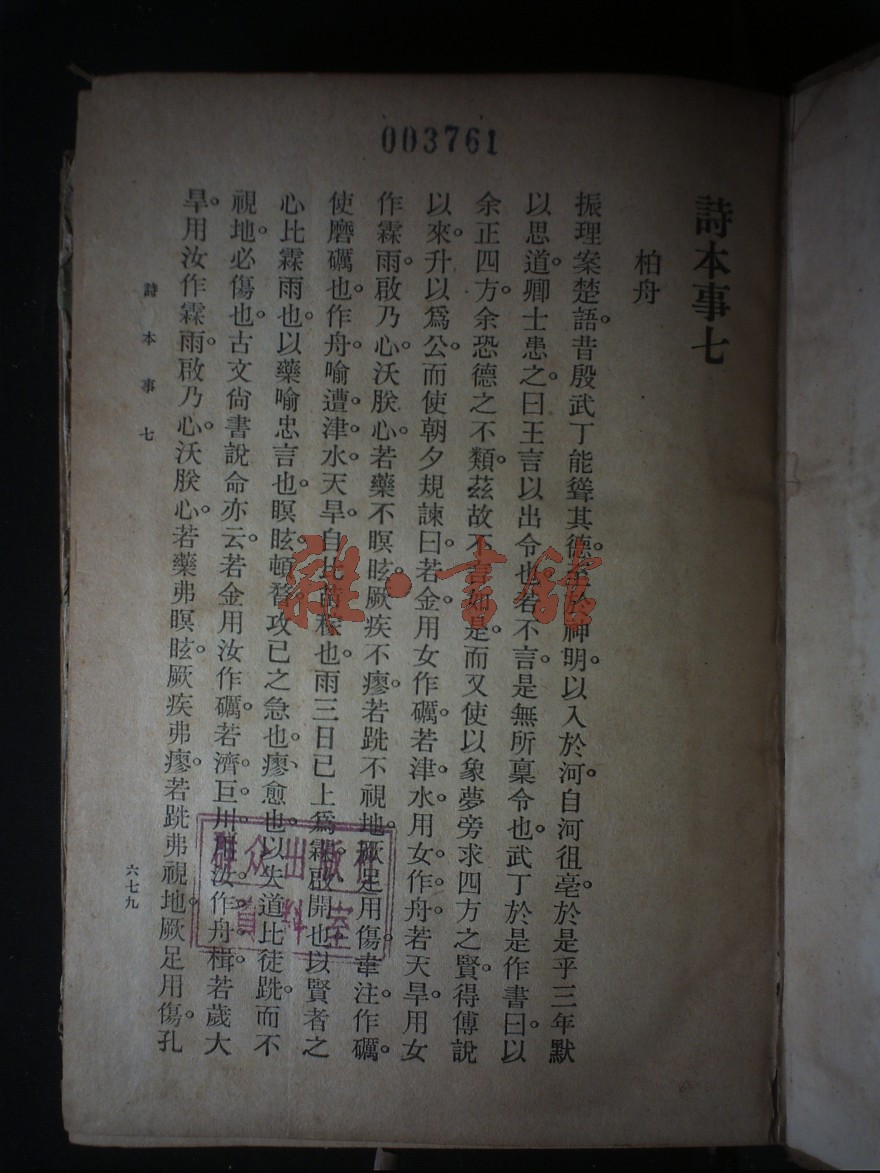 003761
詩本事七
柏舟
振理案楚語昔殷武丁能聳其德。至於神明。以入於河。自河徂亳。於是乎三年默
以思道。卿士患之。曰王言以出令也。若不言。是無所稟令也。武丁於是作書曰。以
余正四方。余恐德之不類。茲故不言如是。而又使以象夢旁求四方之賢。得傅說
以來。升以爲公。而使朝夕規諫曰。若金用女作礪。若津水。用女作舟。若天旱。用女
作霖雨。啟乃心。沃朕心。若藥不瞑眩。厥疾不瘳。若跣不視地。厥足用傷。韋注。作礪。
使磨礪也。作舟喻遭津水。天旱。自比苗稼也。雨三日已上爲霖。啟開也。以賢者之
心比霖雨也。以藥喻忠言也。瞑眩頓瞀。攻已之急也。瘳愈也。以失道比徒跣。而不
視地。必傷也。古文尙書說命亦云。若金用汝作礪。若濟巨川。用汝作舟楫。若歲大
旱。用汝作霖雨。啟乃心。沃朕心。若藥弗瞑眩。厥疾弗瘳。若跣弗視地。厥足用傷。孔
詩本事七
六七九
雜·書館
群众出版社
資料室